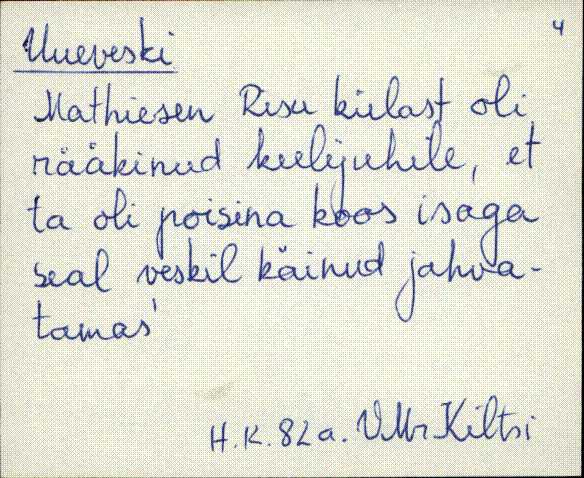 4
Uueveski
Mathiesen Risu külast oli
rääkinud keelejuhile, et
ta oli poisina koos isaga
seal veskil käinud jahva-
tamas'
H.K. 82 a. VMr Kiltsi